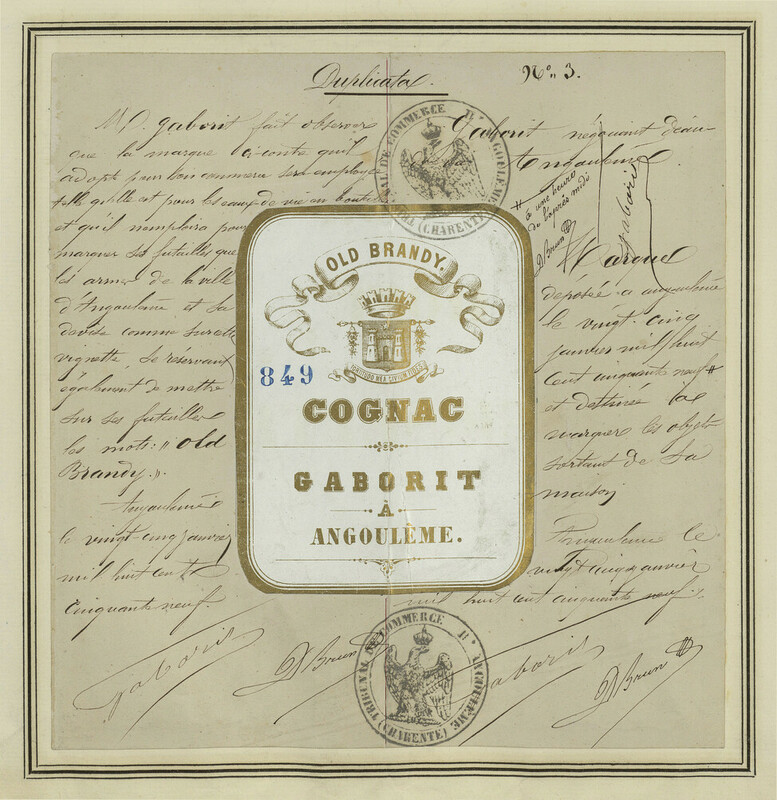 Duplicata.
N°. 3.
M. D. Gaborit fait observer
que la marque ci-contre qu'il
adopte pour son commerce sera employée
telle qu'elle est pour les eaux de vie en bouteilles
et qu'il n'emploira pour
marquer ses futailles que
les armes de la ville
d'Angoulême et sa
devise comme sur cette
vignette, se reservant
également de mettre
sur ses futailles
les mots: " Old
Brandy."
Angoulême
le vingt cinq janvier
mil huit cent
cinquante neuf.
Gaborit
D Brun
TRIBUNAL DE COMMERCE D'ANGOULÊME
(CHARENTE)
OLD BRANDY.
849
COGNAC
GABORIT
À
ANGOULÊME.
Gaborit négociant
Angoulême
à une heure
de l'après midi
D Brun
Gaborit
Marque
deposée a angoulême
le vingt-cinq
janvier mil huit
cent cinquante neuf #
et destinée à
marquer les objets
sortant de sa
maison
Angoulême le
vingt cinq janvier
mil huit cent cinquante neuf.
Gaborit
D Brun
TRIBUNAL DE COMMERCE D'ANGOULÊME
(CHARENTE)